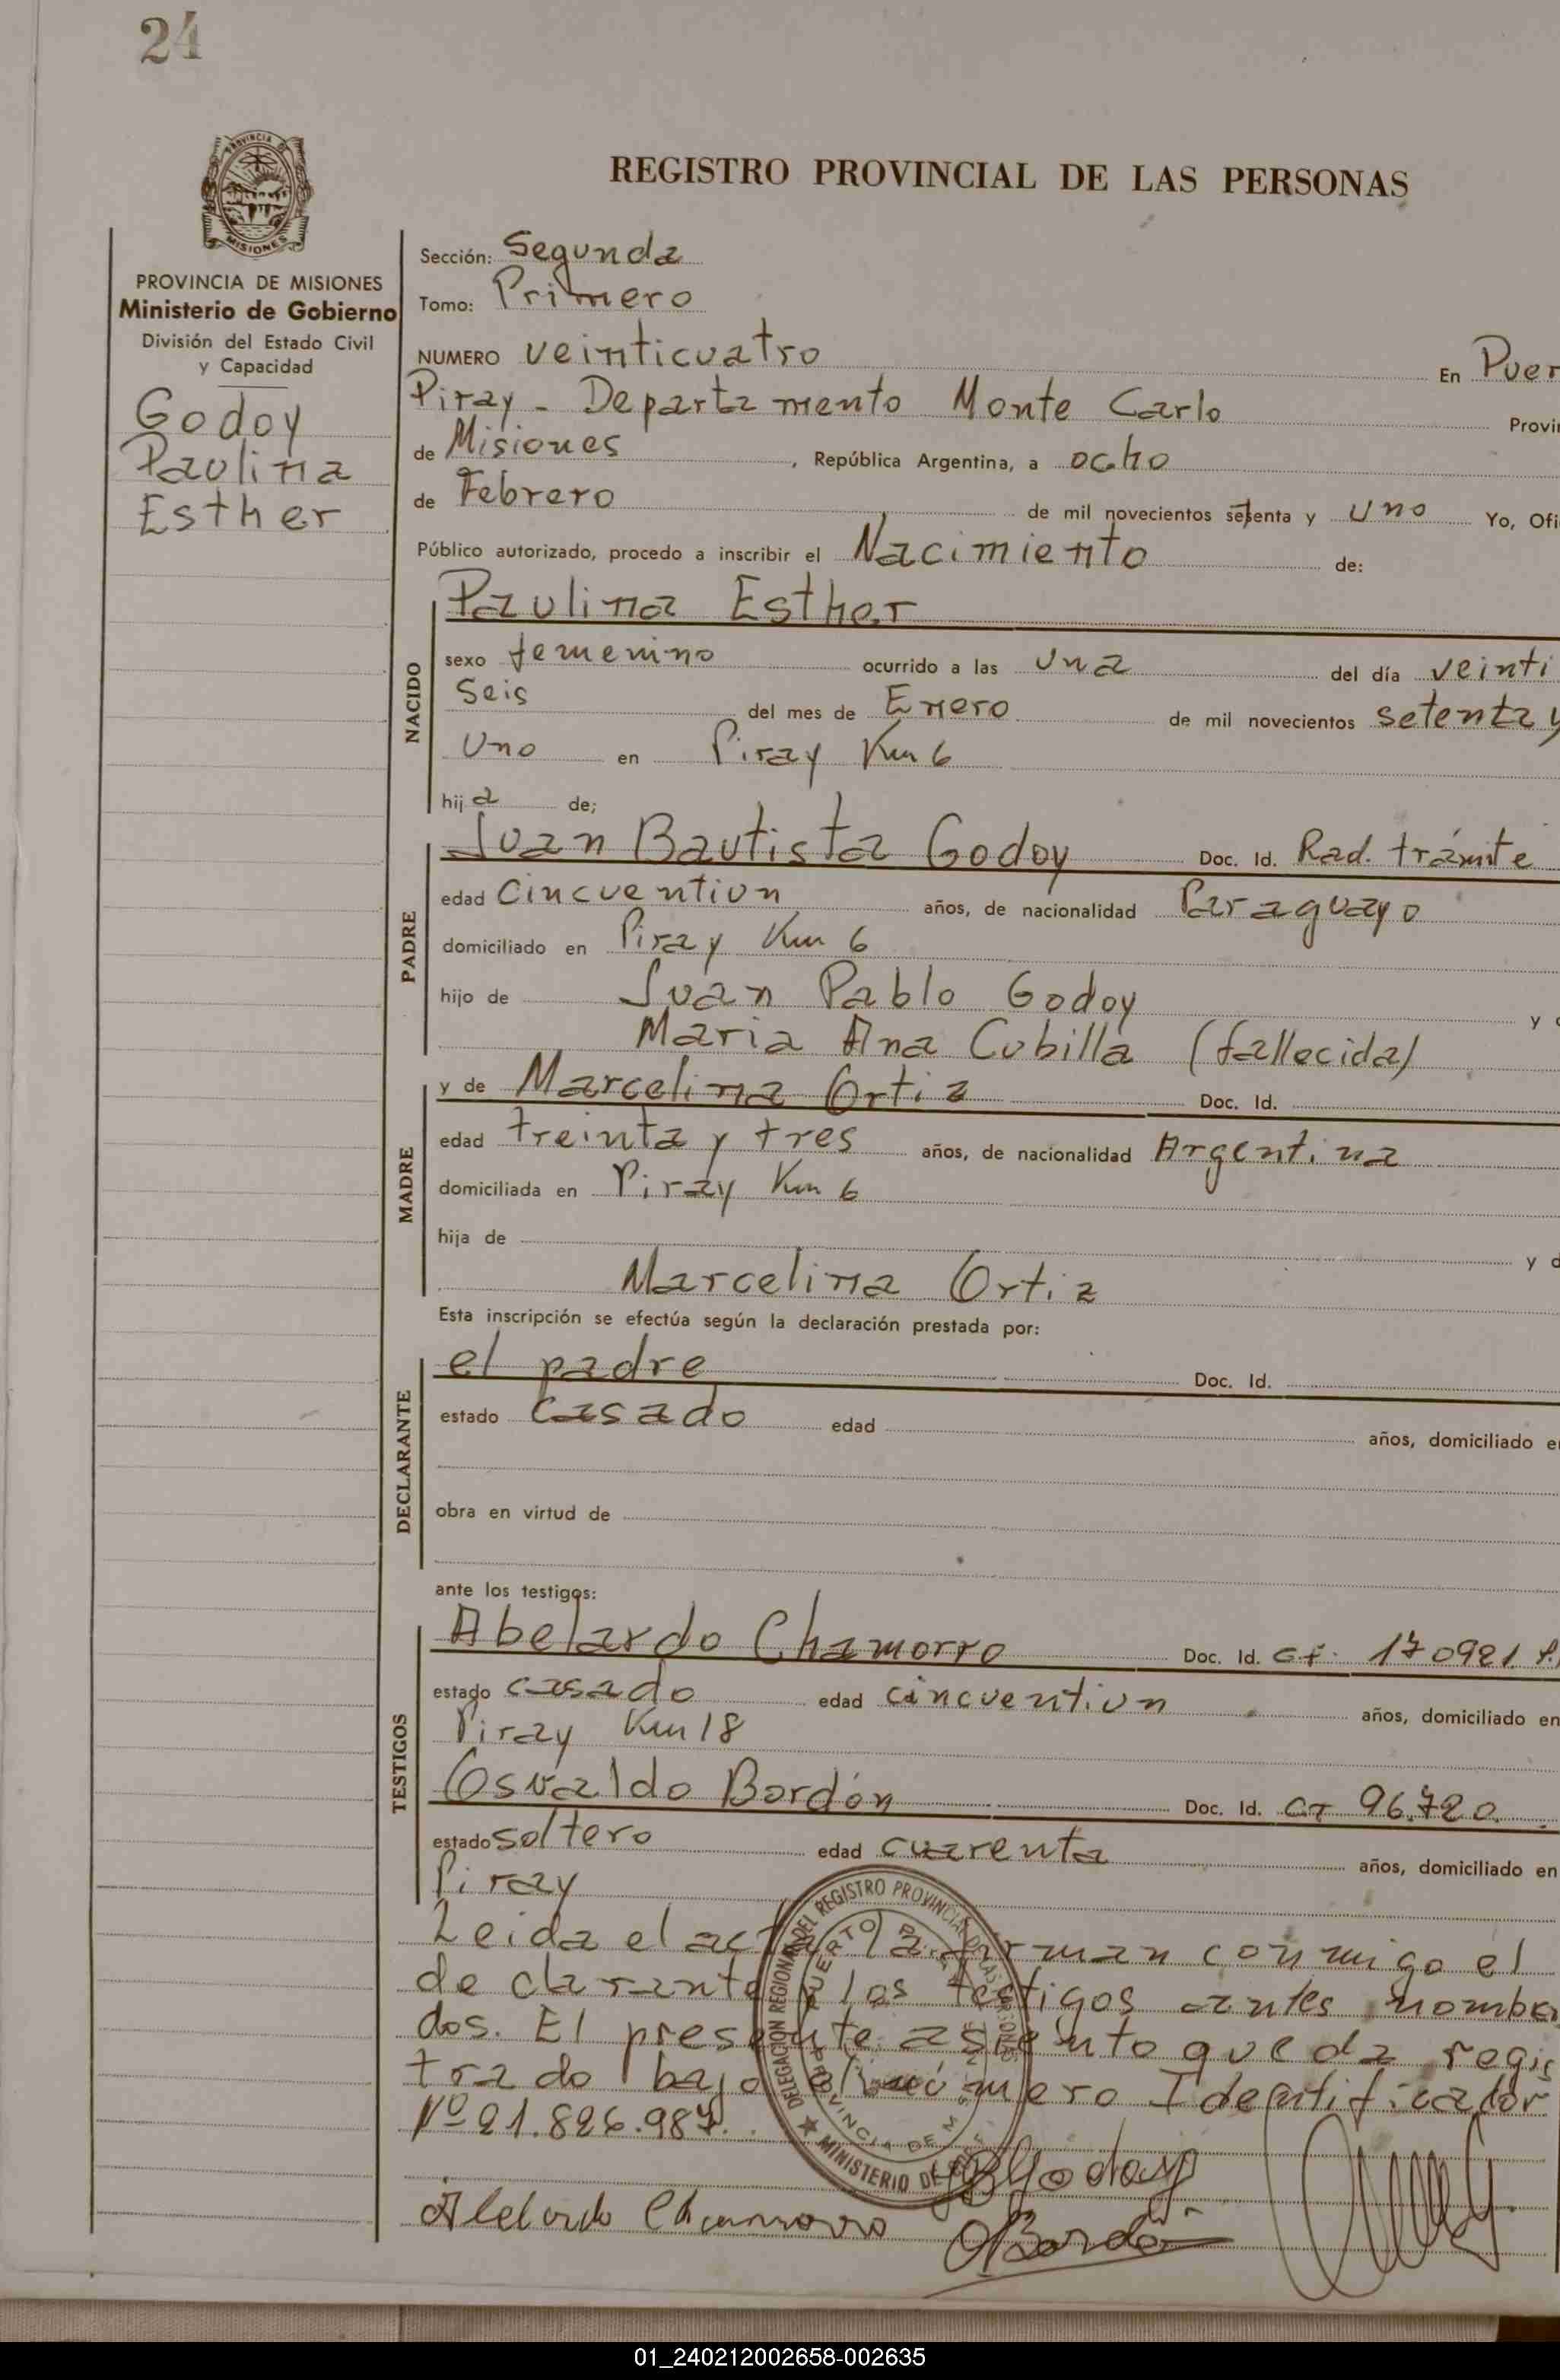 24
PROVINCIA DE
MISIONES
PROVINCIA DE MISIONES
Ministerio de Gobierno
División del Estado Civil
y Capacidad
Godoy
Paulina
Esther
REGISTRO PROVINCIAL DE LAS PERSONAS
Sección: Segunda
Tomo: Primero
NUMERO veinticuatro En Puer
Piray - Departamento Monte Carlo Provin
de Misiones, República Argentina, a ocho
de Febrero de mil novecientos setenta y uno Yo, Ofi
Público autorizado, procedo a inscribir el Nacimiento de:
NACIDO
Paulina Esther
sexo femenino ocurrido a las una del día veinti
seis del mes de Enero de mil novecientos setenta y
uno en Piray Km 6
hija de;
PADRE
Juan Bautista Godoy Doc. Id. Rad. trámite
edad cincuentiun años, de nacionalidad Paraguayo
domiciliado en Piray Km 6
hijo de Juan Pablo Godoy y d
Maria Ana Cubilla (fallecida)
MADRE
y de Marcelina Ortiz Doc. Id.
edad treinta y tres años, de nacionalidad Argentina
domiciliada en Piray Km 6
hija de y d
Marcelina Ortiz
Esta inscripción se efectúa según la declaración prestada por:
DECLARANTE
el padre Doc. Id.
estado casado edad años, domiciliado en
obra en virtud de
ante los testigos:
TESTIGOS
Abelardo Chamorro Doc. Id. 170921
estado casado edad cincuentiun años, domiciliado en
Piray Km 18
Osvaldo Bordón Doc. Id. 96.720
estado soltero edad cuarenta años, domiciliado en
Piray
Leida el acta la firman conmigo el
declarante y los testigos antes nombra
dos. El presente asiento queda regis
trado bajo el número Identificador
Nº 21.826.987.
DELEGACIÓN REGIONAL DEL REGISTRO PROVINCIAL DE LAS PERSONAS
PUERTO PIRAY
PROVINCIA DE MISIONES
MINISTERIO DE
JBGodoy
Abelardo Chamorro
OBordón
01_240212002658-002635